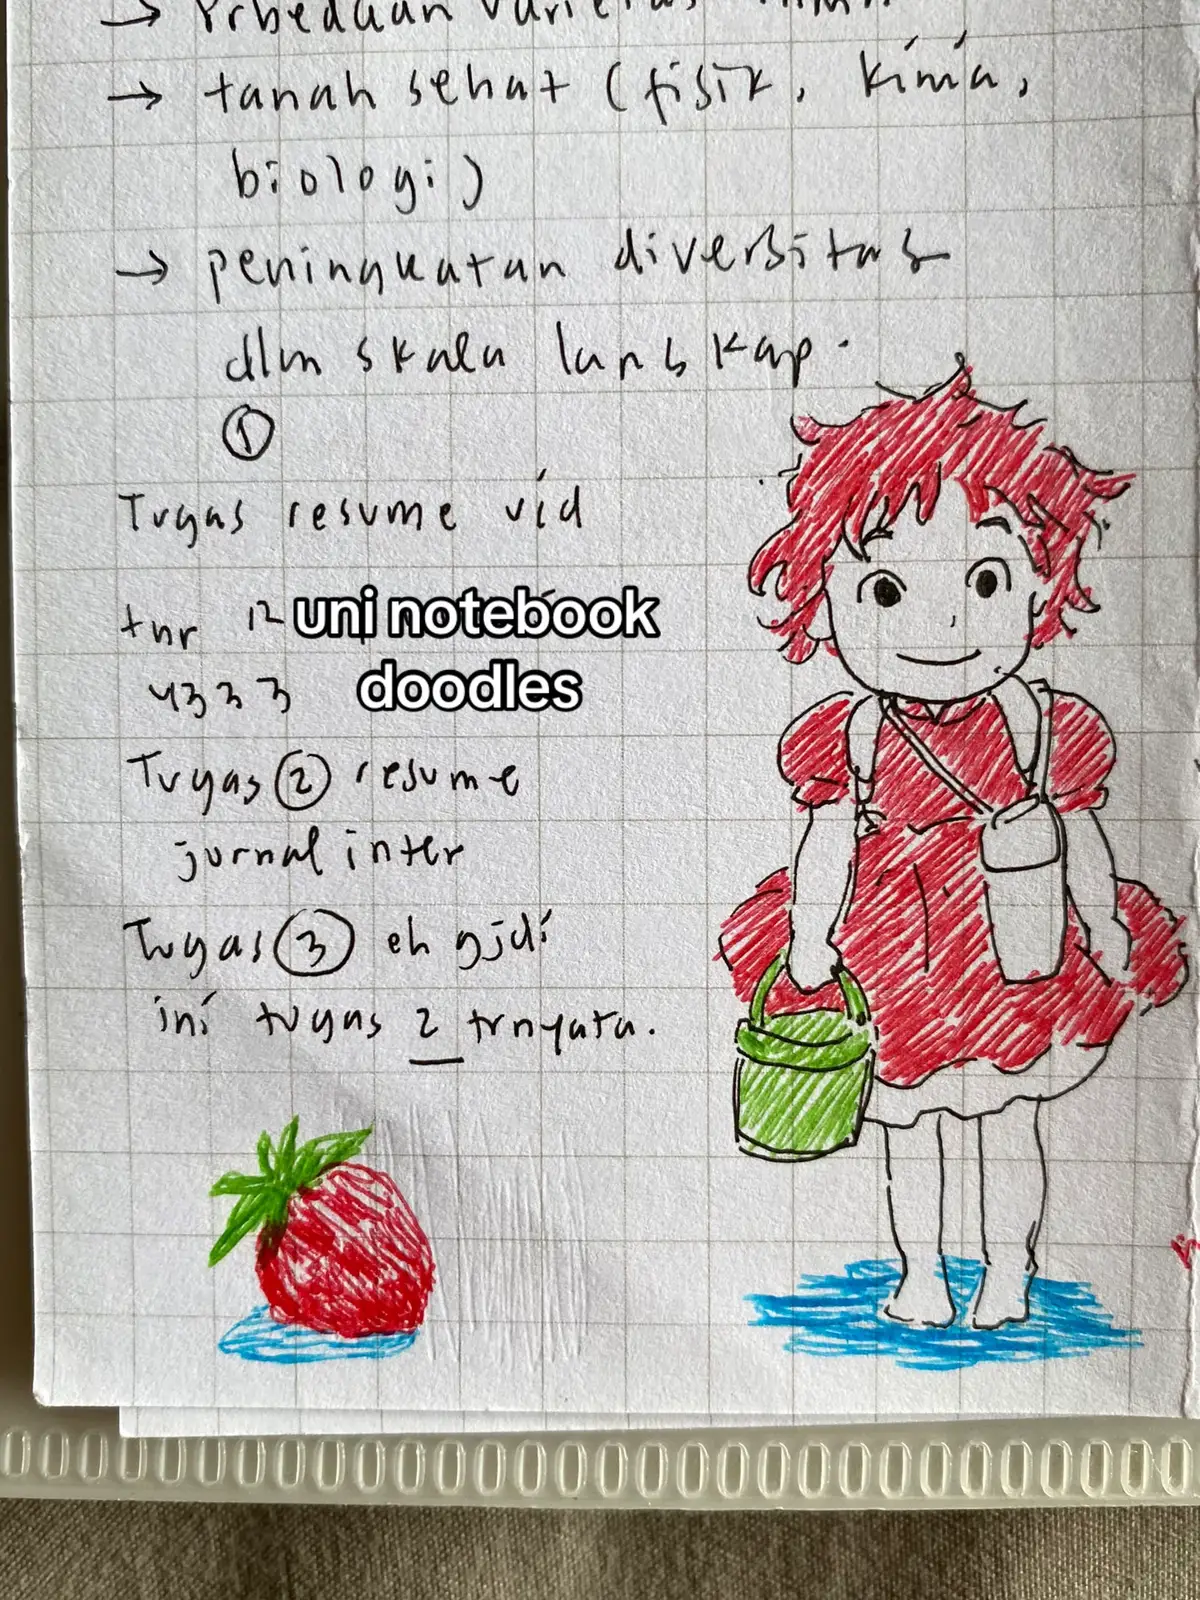 → Prbedaan varietas
→ tanah sehat (fisik, kimia,
biologi)
→ peningkatan diversitas
dlm skala lanskap.
①
Tugas resume vid
tnr 12
4333
uni notebook
doodles
Tugas ② resume
jurnal inter
Tugas ③ eh gjdi
ini tugas 2 trnyata.